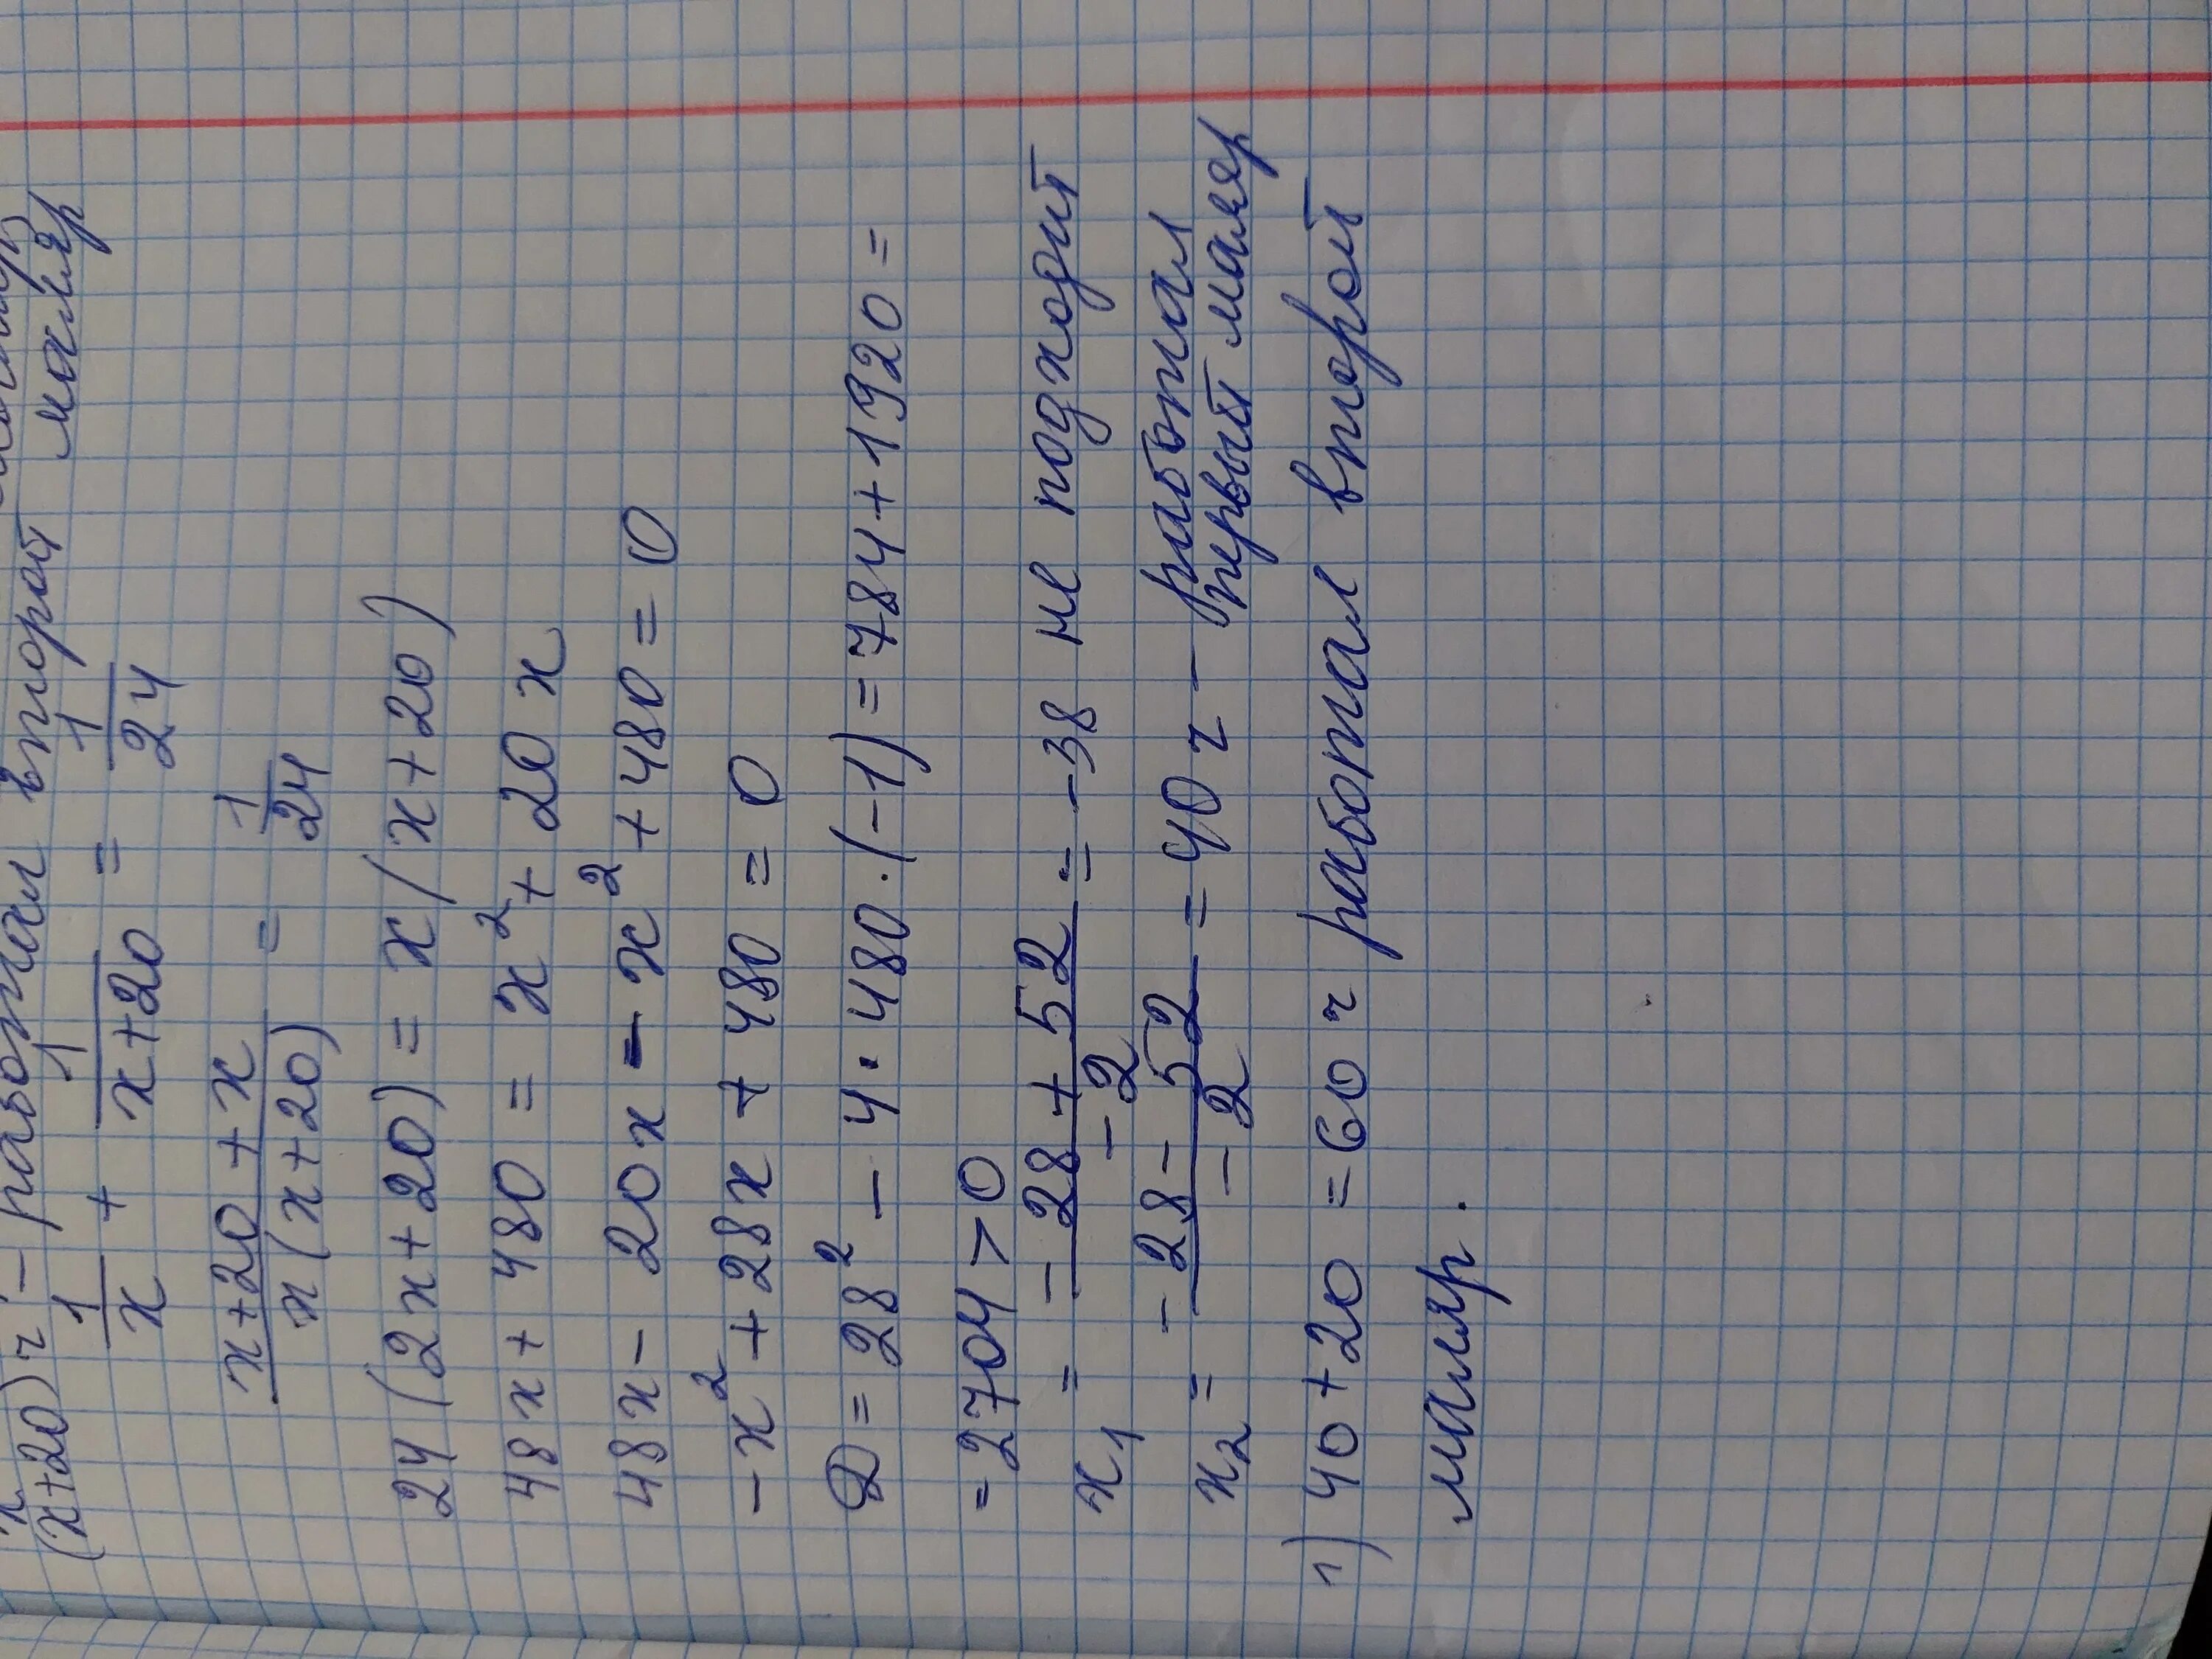 (x+20) ч - работал второй маляр
1/x + 1/(x+20) = 1/24
(x+20+x)/(x(x+20)) = 1/24
24(2x+20) = x(x+20)
48x+480 = x²+20x
48x-20x-x²+480=0
-x²+28x+480=0
D=28²-4·480·(-1)=784+1920=
=2704>0
x₁ = (-28+52)/-2 = -38 не подходит
x₂ = (-28-52)/-2 = 40 ч - работал первый маляр
1) 40+20=60 ч работал второй
маляр.